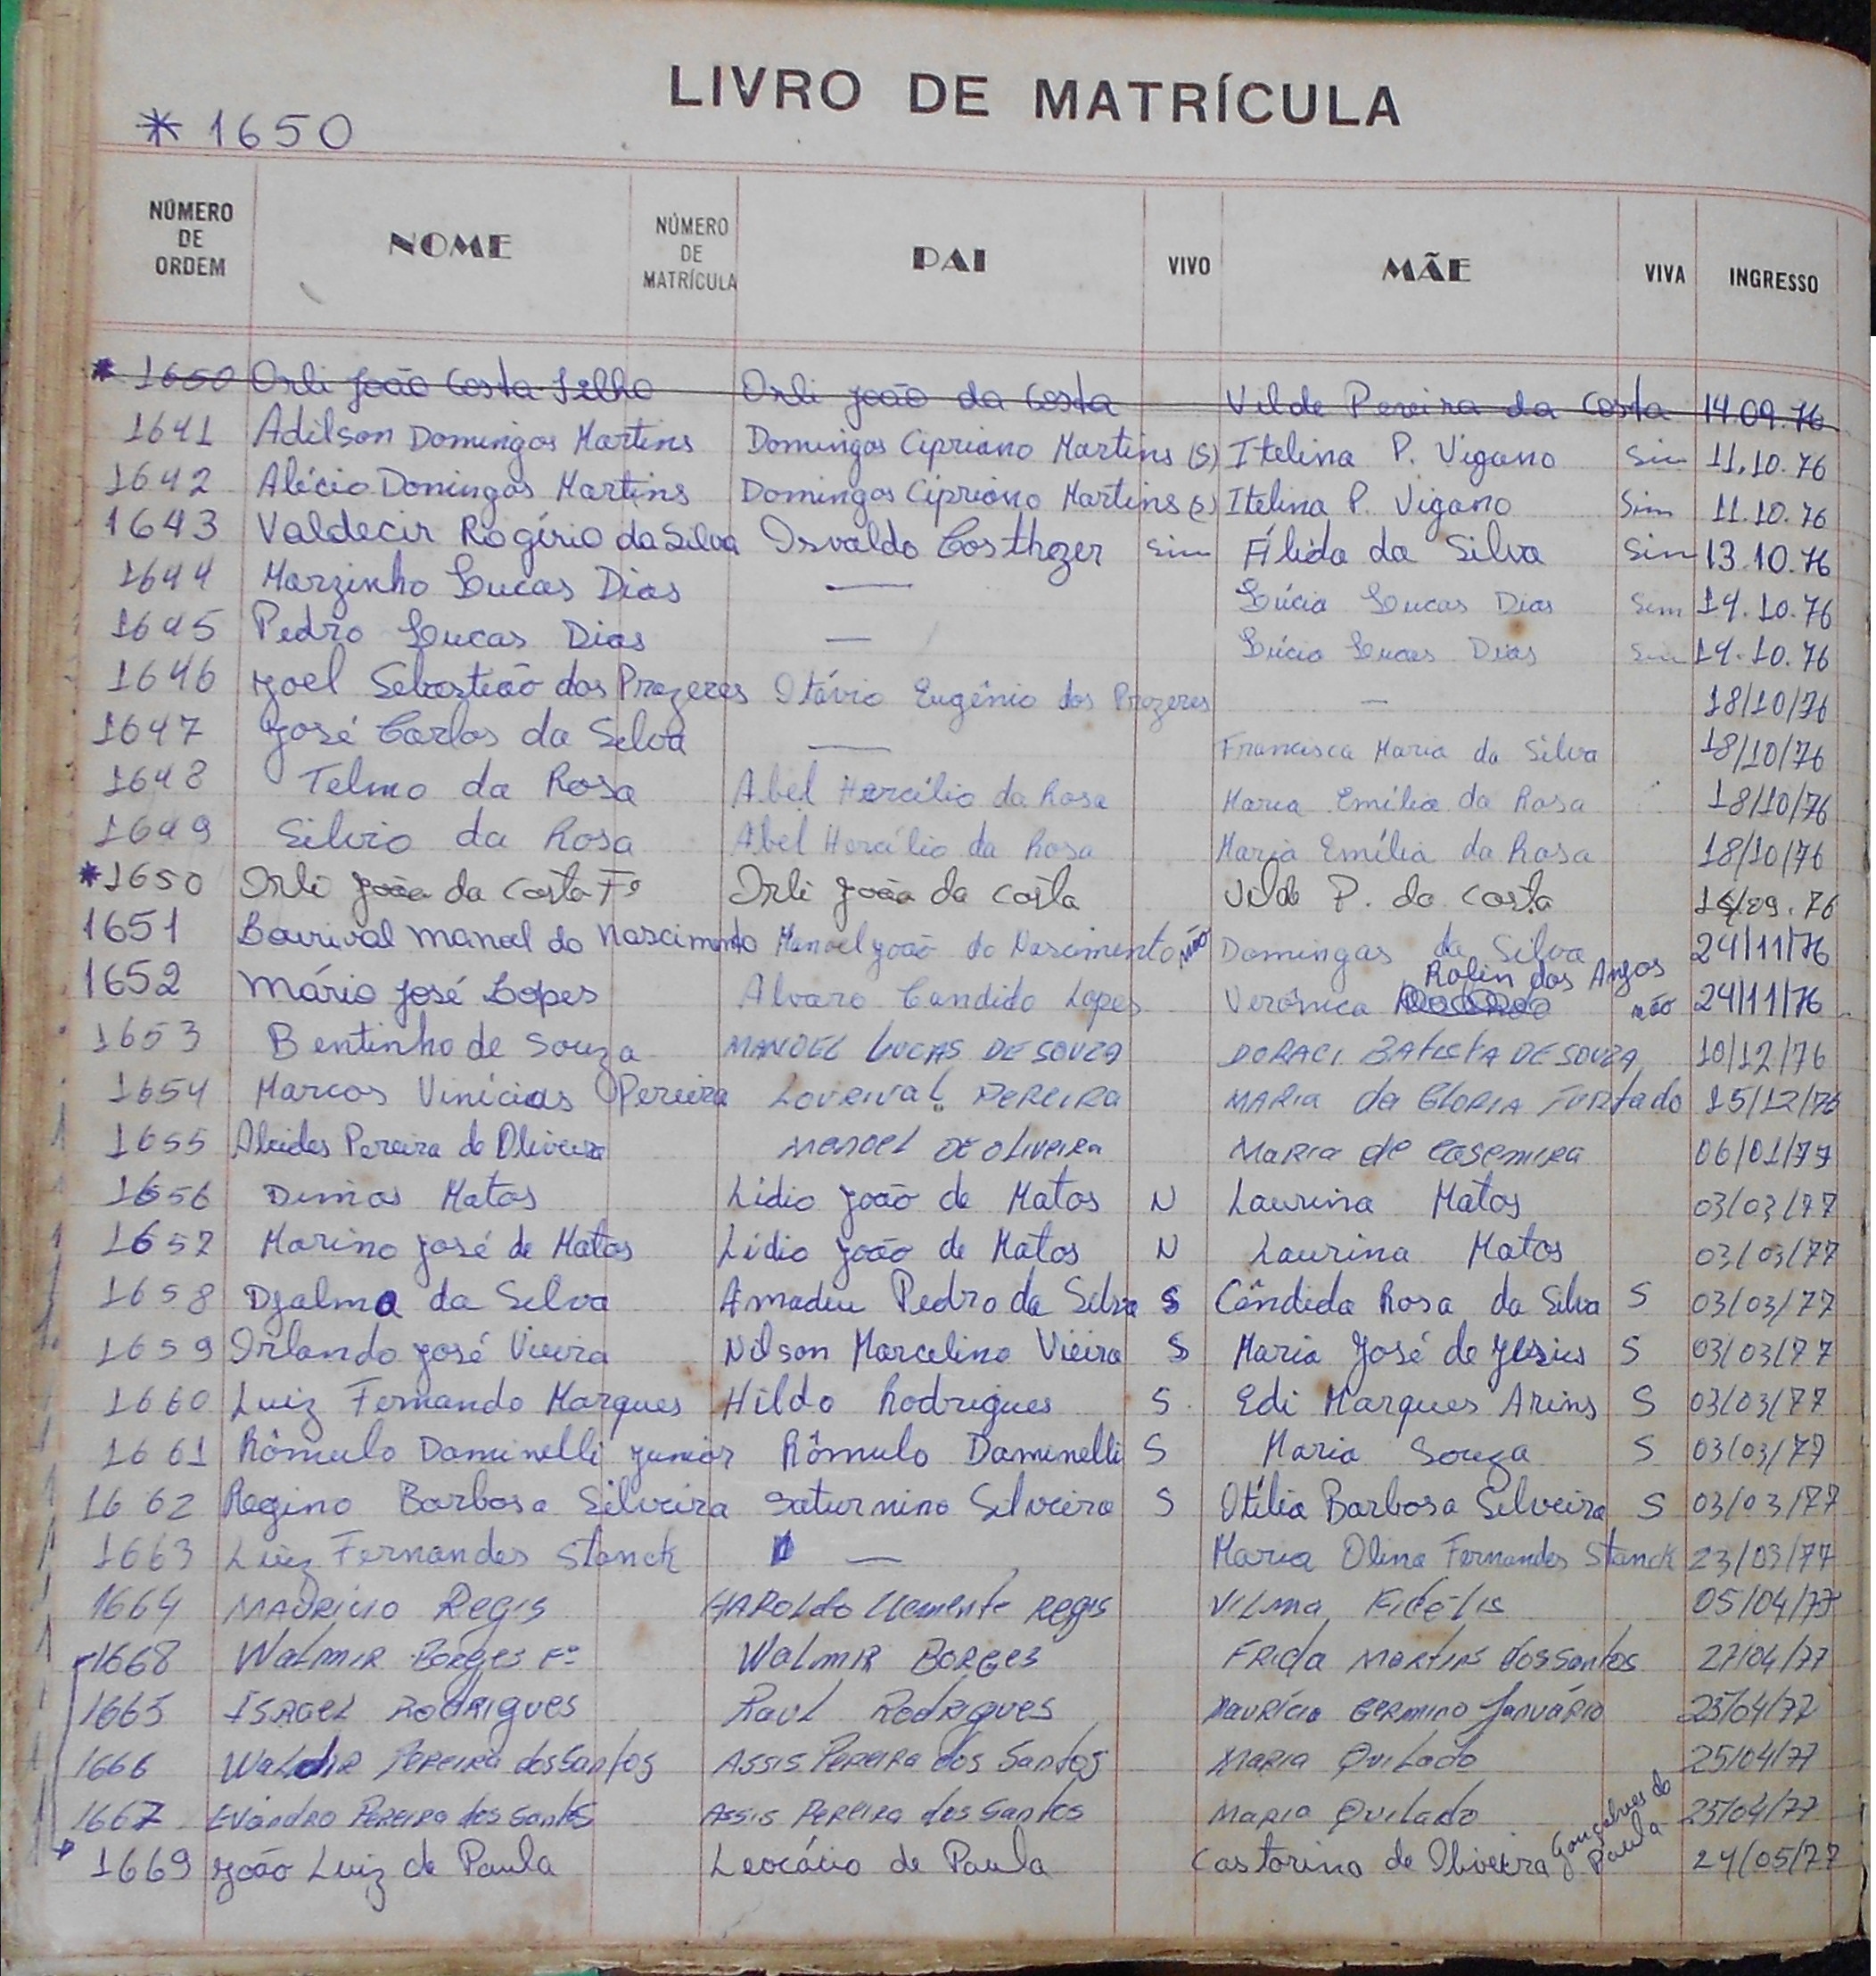 LIVRO DE MATRÍCULA
* 1650
NÚMERO DE ORDEM NOME NÚMERO DE MATRÍCULA PAI VIVO MÃE VIVA INGRESSO
* 1650 Orli João Costa Filho Orli João da Costa Vilde Pereira da Costa 14.09.76
1641 Adilson Domingos Martins Domingos Cipriano Martins (S) Itelina P. Vigano Sim 11.10.76
1642 Alécio Domingos Martins Domingos Cipriano Martins (S) Itelina P. Vigano Sim 11.10.76
1643 Valdecir Rogério da Silva Osvaldo Sim Élida da Silva Sim 13.10.76
1644 Marzinho Lucas Dias — Lúcia Lucas Dias Sim 14.10.76
1645 Pedro Lucas Dias — Lúcia Lucas Dias Sim 14.10.76
1646 Joel Sebastião dos Prazeres Otávio Eugênio dos Prazeres — 18/10/76
1647 José Carlos da Silva — Francisca Maria da Silva 18/10/76
1648 Telmo da Rosa Abel Hercílio da Rosa Maria Emília da Rosa 18/10/76
1649 Silvio da Rosa Abel Hercílio da Rosa Maria Emília da Rosa 18/10/76
*1650 Orli João da Costa Fº Orli João da Costa Vilde P. da Costa 14/09.76
1651 Lourival Manoel do Nascimento Manoel João do Nascimento não Domingas da Silva 24/11/76
1652 Mário José Lopes Alvaro Candido Lopes Verônica Rolin dos Anjos não 24/11/76
1653 Bentinho de Souza MANOEL LUCAS DE SOUZA DORACI BATISTA DE SOUZA 10/12/76
1654 Marcos Vinícius Pereira LOURIVAL PEREIRA MARIA da GLORIA FURTado 15/12/76
1655 Alcides Pereira de Oliveira MANOEL DE OLIVEIRA MARIA de CASEMIRA 06/01/77
1656 Dimas Matos Lídio João de Matos N Laurina Matos 03/03/77
1657 Marino José de Matos Lídio João de Matos N Laurina Matos 03/03/77
1658 Djalma da Silva Amadeu Pedro da Silva S Cândida Rosa da Silva S 03/03/77
1659 Orlando José Vieira Nilson Marcelino Vieira S Maria José de Jesus S 03/03/77
1660 Luiz Fernando Marques Hildo Rodrigues S Edi Marques Arins S 03/03/77
1661 Rômulo Daminelli Junior Rômulo Daminelli S Maria Souza S 03/03/77
1662 Regino Barbosa Silveira Saturnino Silveira S Otília Barbosa Silveira S 03/03/77
1663 Luiz Fernandes Stanck — Maria Olina Fernandes Stanck 23/03/77
1664 MAURICIO Regis HAROLdo Clemente Regis VILMA FIDÉLIS 05/04/77
1668 WALMIR BORGES Fº WALMIR BORGES FRIDA MARTINS dos Santos 27/04/77
1665 ISRAEL RODRIGUES RAUL RODRIGUES MAURÍCIA GERMINO JANUÁRIO 25/04/77
1666 WALDIR PEREIRA dos Santos ASSIS PEREIRA dos Santos MARIA Quilado 25/04/77
1667 EVANDRO PEREIRA dos Santos ASSIS PEREIRA dos Santos MARIA Quilado 25/04/77
* 1669 João Luiz de Paula Leocácio de Paula Castorina de Oliveira Gonçalves de Paula 24/05/77